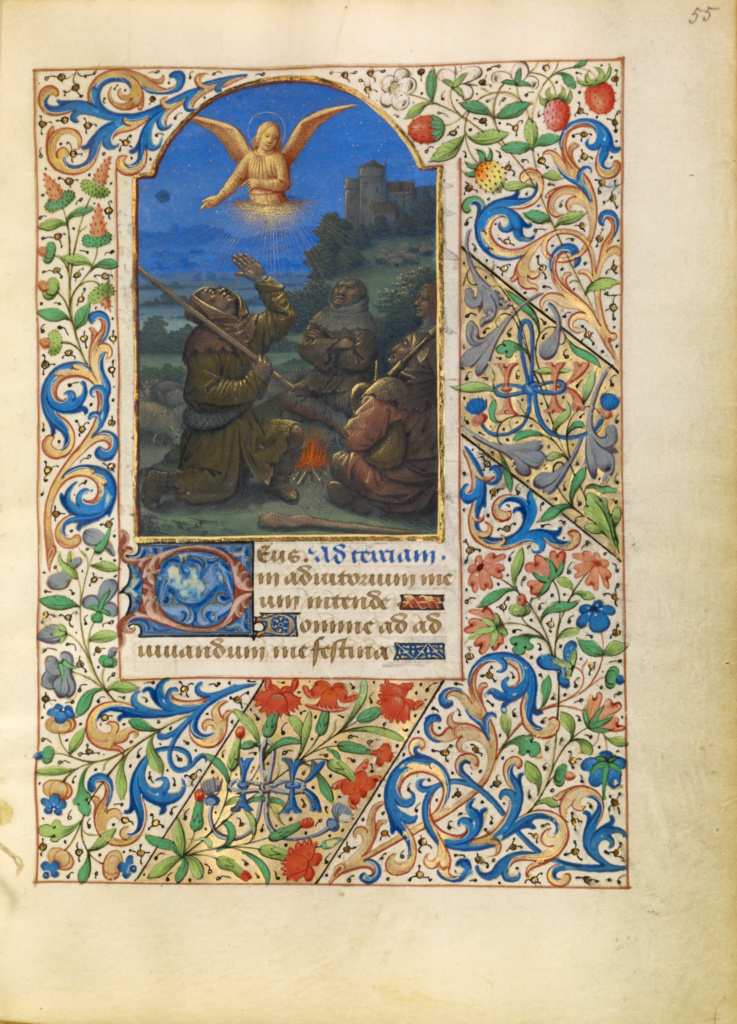 55
Deus. Ad terciam.
in adiutorium me
um intende
Domine ad ad
iuuandum me festina
IHK
IHK